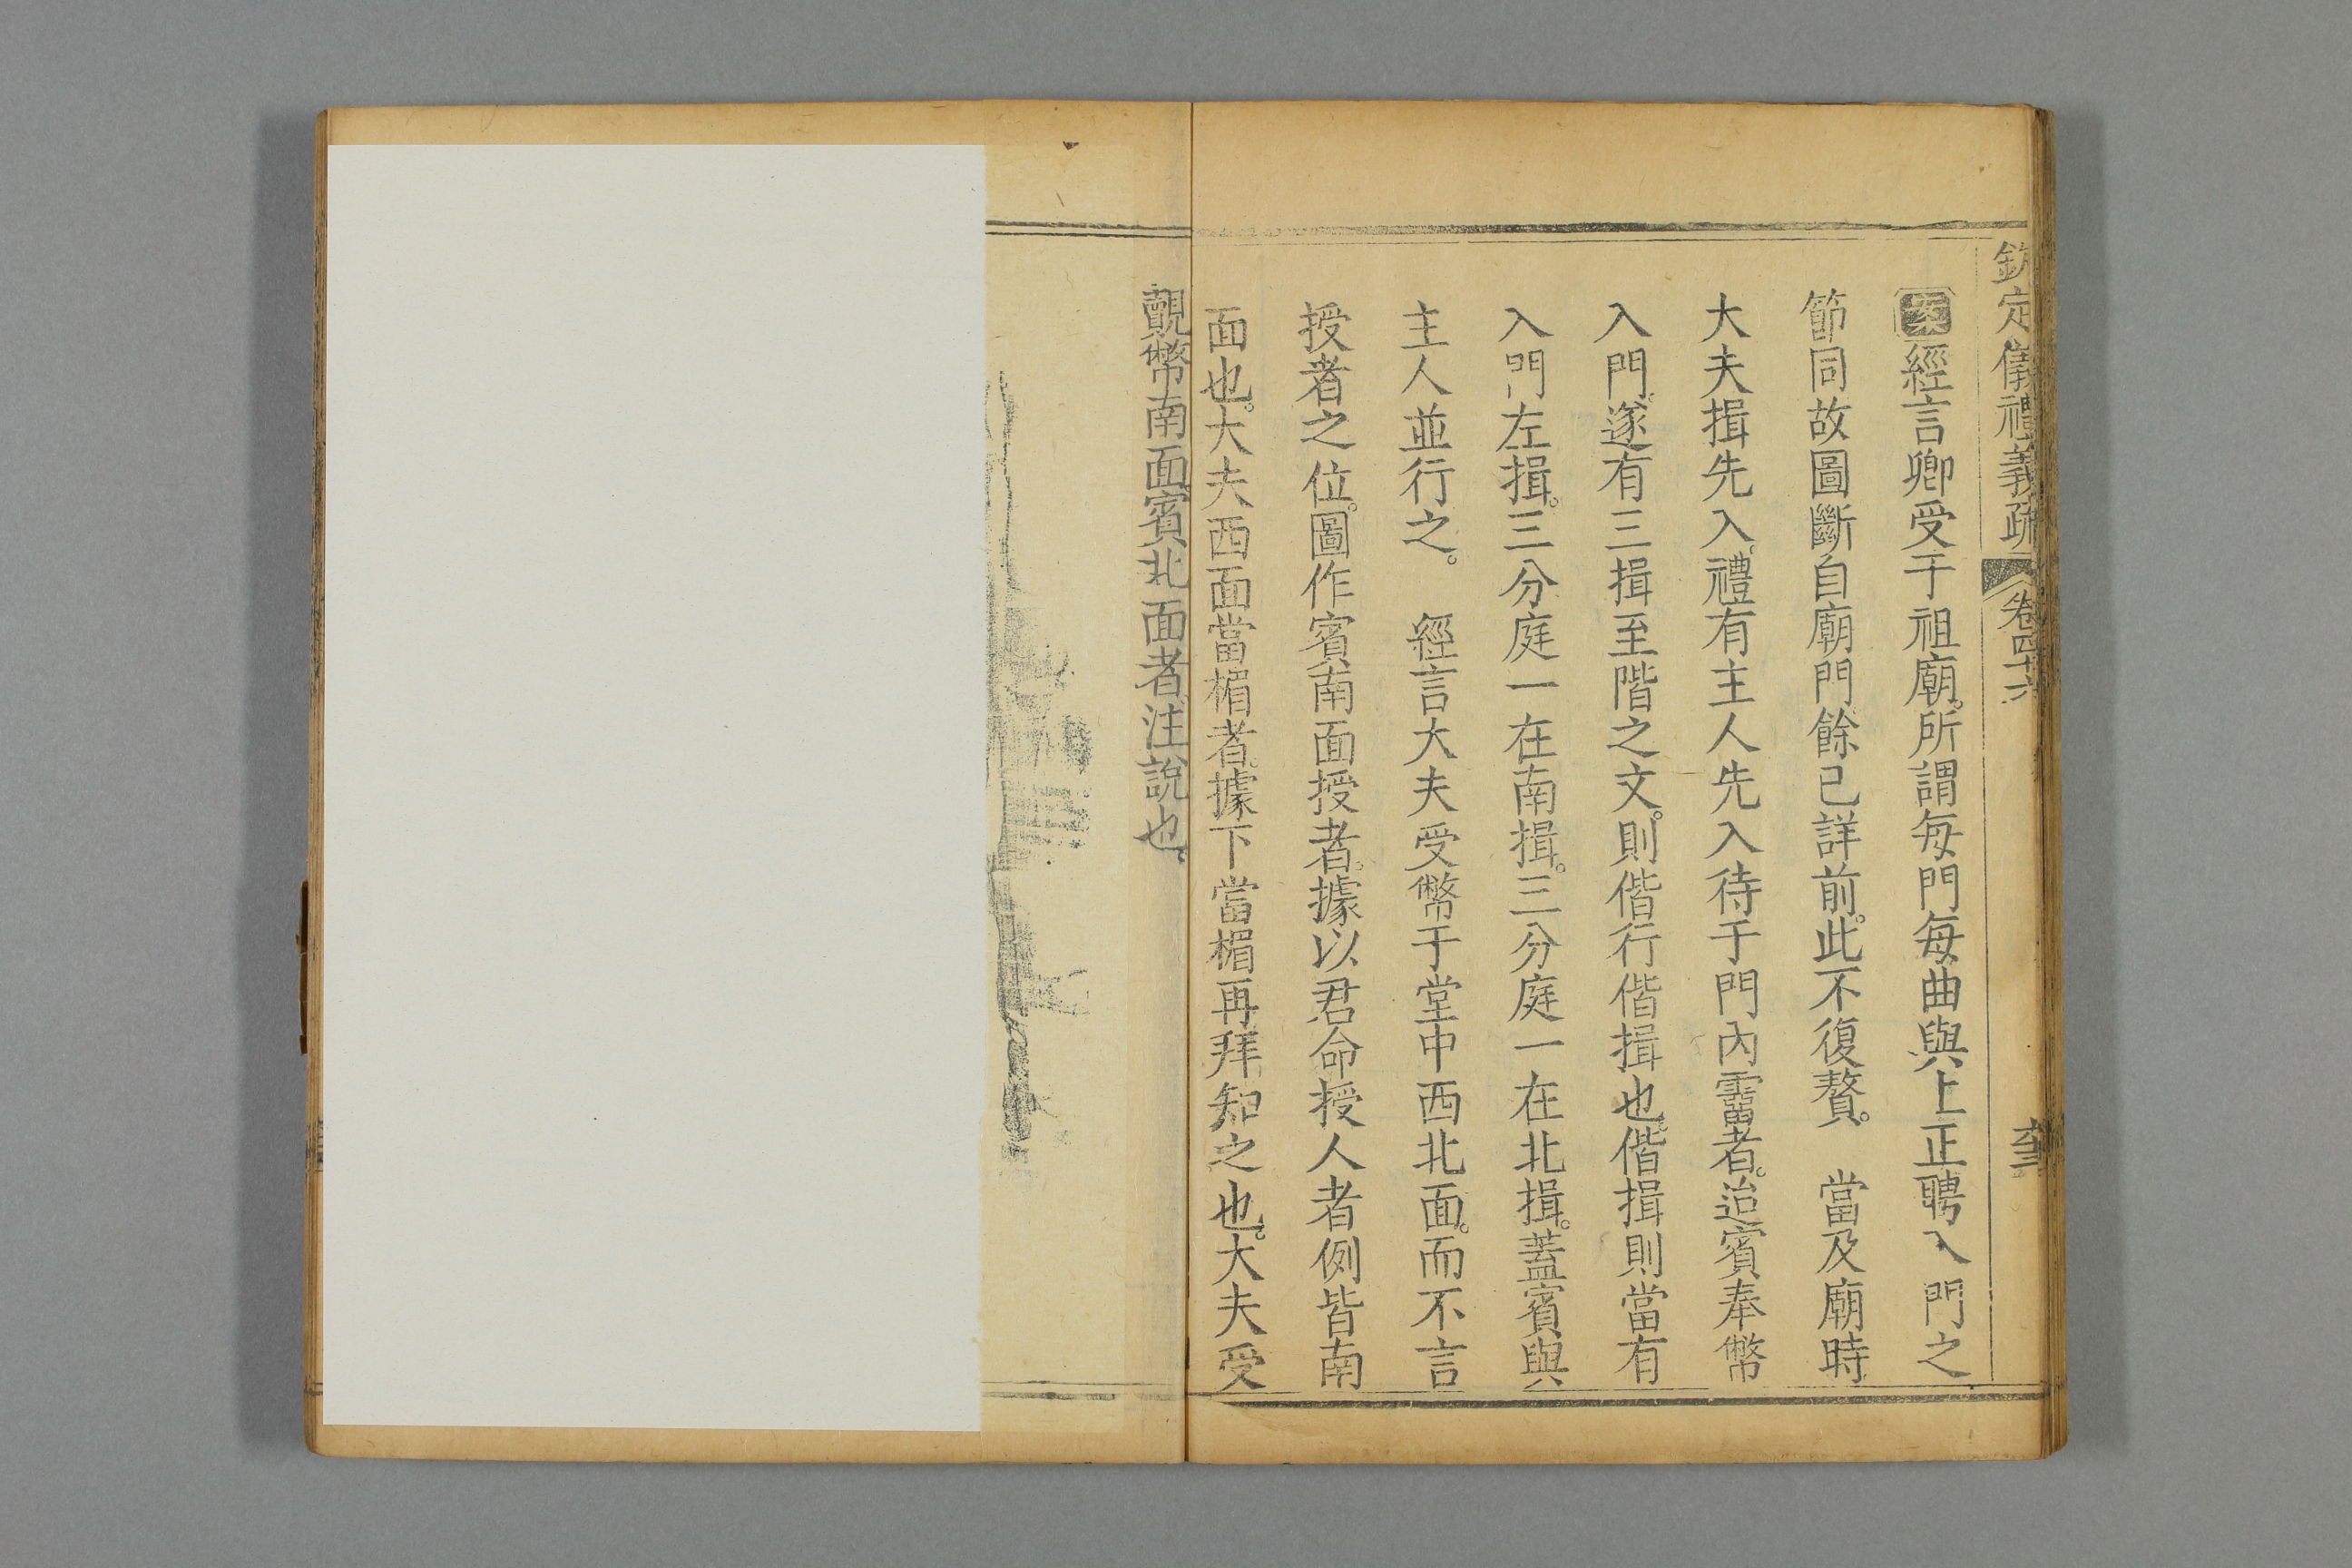 欽定儀禮義疏 卷四十六
案經言卿受于祖廟。所謂每門每曲與上正聘入門之
節同故圖斷自廟門餘已詳前。此不復贅。 當及廟時
大夫揖先入。禮有主人先入待于門內霤者。迨賓奉幣
入門。遂有三揖至階之文。則偕行偕揖也。偕揖則當有
入門左揖。三分庭一在南揖。三分庭一在北揖。蓋賓與
主人並行之。 經言大夫受幣于堂中西北面。而不言
授者之位。圖作賓南面授者。據以君命授人者例皆南
面也。大夫西面當楣者。據下當楣再拜知之也。大夫受
覿幣南面賓北面者。注說也。